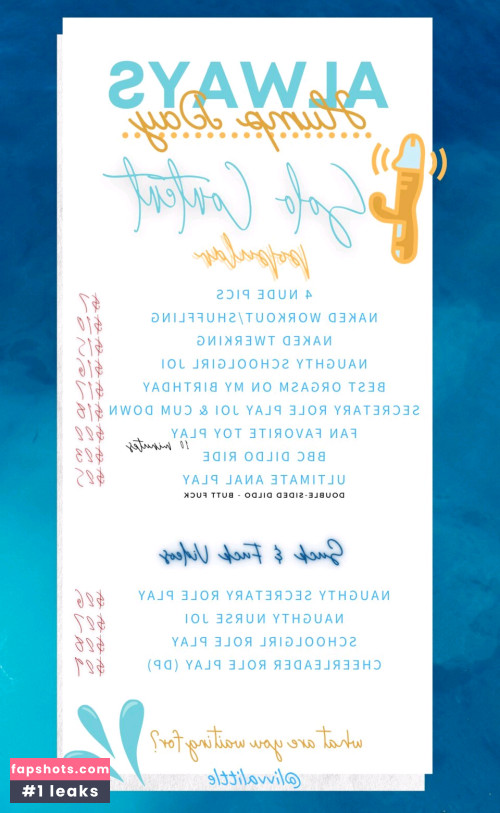 ALWAYS
Hump Day
Solo Content
4 NUDE PICS
NAKED WORKOUT/SHUFFLING
NAKED TWERKING
NAUGHTY SCHOOLGIRL JOI
BEST ORGASM ON MY BIRTHDAY
SECRETARY ROLE PLAY JOI & CUM DOWN
FAN FAVORITE TOY PLAY
10 minutes
BBC DILDO RIDE
ULTIMATE ANAL PLAY
DOUBLE-SIDED DILDO - BUTT FUCK
Suck & Fuck Videos
NAUGHTY SECRETARY ROLE PLAY
NAUGHTY NURSE JOI
SCHOOLGIRL ROLE PLAY
CHEERLEADER ROLE PLAY (DP)
what are you waiting for?
@livvalittle
fapshots.com
#1 leaks